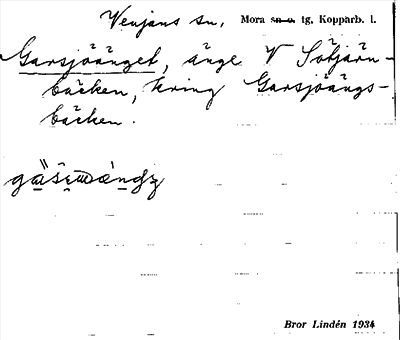 Venjans sn. Mora sn o. tg, Kopparb. l.
Garsjöänget, änge V Sötjärn-
bäcken, kring Garsjöängs-
bäcken.
Bror Lindén 1934